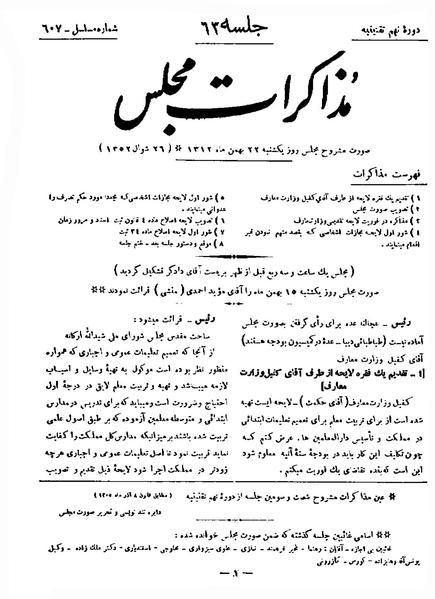 دورهٔ نهم تقنینیه
جلسه ۶۳
شماره مسلسل - ۶۰۷
مذاکرات مجلس
صورت مشروح مجلس روز یکشنبه ۲۲ بهمن ماه ۱۳۱۲ * (۲۶ شوال ۱۳۵۲)
فهرست مذاکرات
۱) تقدیم یک فقره لایحه از طرف آقای کفیل وزارت معارف
۲) تصویب صورت مجلس
۳) مذاکره در فوریت لایحه تقدیمی وزارت معارف
۴) شور اول لایحه مجازات اشخاصی که بقصد متهم نمودن غیر
اقدام مینمایند.
۵) شور اول لایحه مجازات اشخاصی که مجددا مورد حکم تصرف را
عدوانی مینمایند.
۶) تصویب لایحه اصلاح ماده ۴ قانون ثبت اسناد و مرور زمان
۷) شور لایحه اصلاح ماده ۳۴ ثبت
۸) موقع و دستور جلسه بعد - ختم جلسه
(مجلس یک ساعت و سه ربع قبل از ظهر بریاست آقای دادگر تشکیل گردید)
صورت مجلس روز یکشنبه ۱۵ بهمن ماه را آقای مؤید احمدی (منشی) قرائت نمودند **
رئیس - عجالتاً عده برای رأی گرفتن بصورت مجلس
آماده نیست (طباطبائی دیبا - عدهٔ در کمیسیون بودجه هستند)
آقای کفیل وزارت معارف
[۱- تقدیم یک فقره لایحه از طرف آقای کفیل وزارت
معارف]
کفیل وزارت معارف (آقای حکمت) - لایحه ایست تهیه
شده است از برای تربیت معلم برای تعمیم تعلیمات ابتدائی
در مملکت و تأسیس دارالمعلمین ها. عرض کنم که
چون تکلیف این کار باید در بودجهٔ سنهٔ آتیه معلوم شود
این است که بنده تقاضای یک فوریت میکنم.
رئیس - قرائت میشود:
ساحت مقدس مجلس شورای ملی شیدالله ارکانه
از آنجا که تعمیم تعلیمات عمومی و اجباری که همواره
منظور نظر بوده است موکول به تهیهٔ وسایل و اسباب
لازمه میباشد و تهیه و تربیت معلم لایق در درجهٔ اول
احتیاج و ضرورت است و میباید که برای تدریس در مدارس
ابتدائی و متوسطه معلمین آزموده که بر طبق اصول علمی
تربیت شده باشند بر میزانیکه مدارس کل مملکت را کفایت
نماید تربیت نمود تا اصل تعلیمات عمومی و اجباری هر چه
زودتر در مملکت اجرا شود لایحهٔ ذیل تقدیم و تصویب
** عین مذاکرات مشروح شصت و سومین جلسه از دورهٔ نهم تقنینیه (مطابق قانون ۸ آذر ماه ۱۳۰۵)
دایره تند نویسی و تحریر صورت مجلس
** اسامی غائبین جلسه گذشته که ضمن صورت مجلس خوانده شده:
غائبین بی اجازه - آقایان: رهنما - نمازی - علوی سبزواری - اسفندیاری - دکتر ملک زاده - وکیل
یونس آقا وهابزاده - کورس - کازرونی
- ۱ -